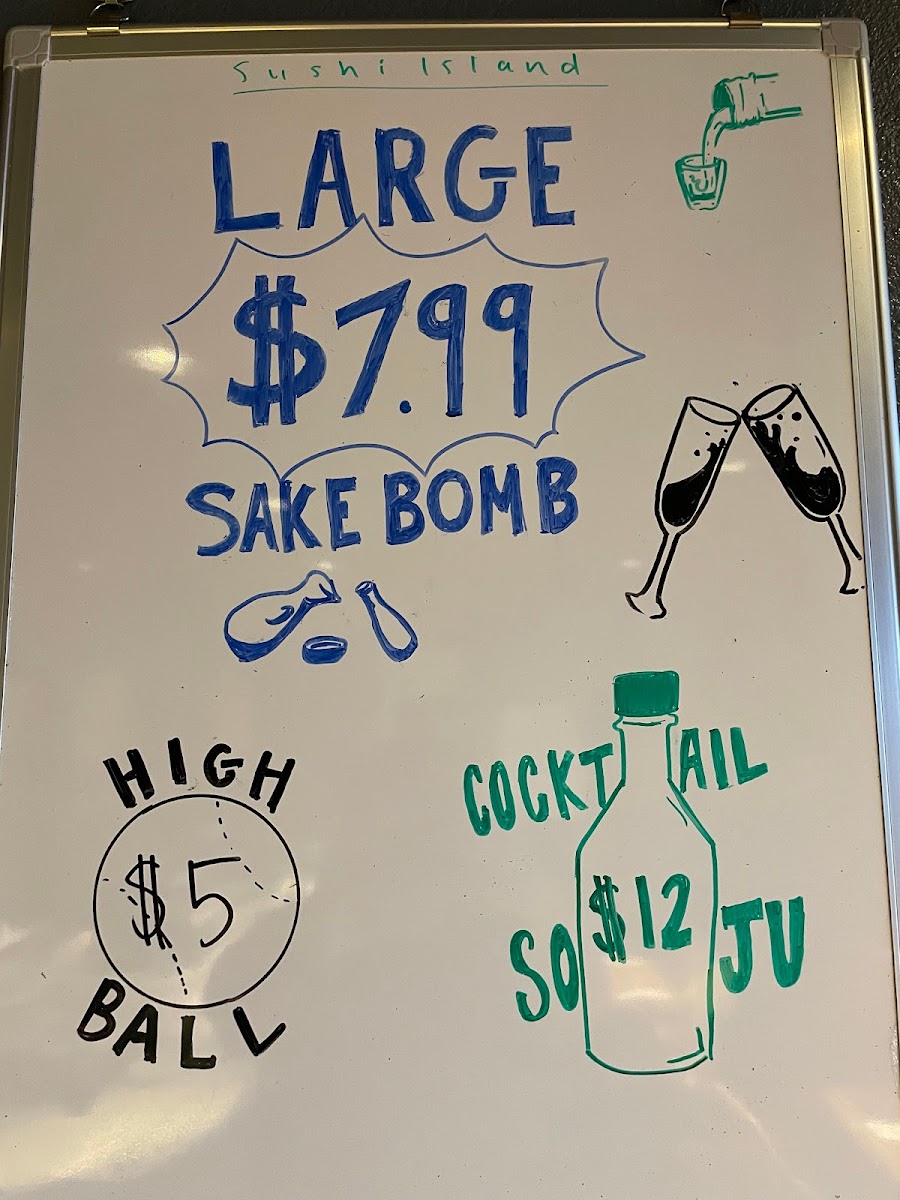 Sushi Island
LARGE
$7.99
SAKE BOMB
HIGH
$5
BALL
COCKTAIL
$12
SOJU